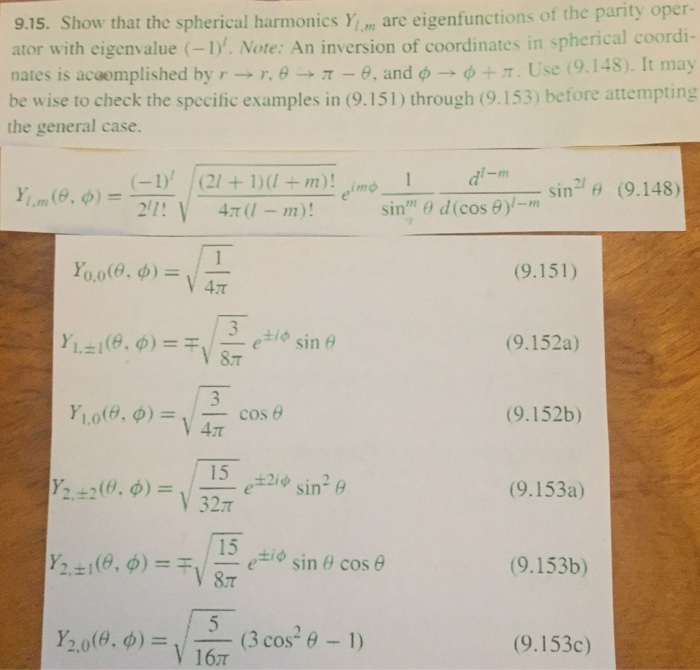 9.15. Show that the spherical harmonics Y_{l,m} are eigenfunctions of the parity oper-
ator with eigenvalue (−1)^l. Note: An inversion of coordinates in spherical coordi-
nates is accomplished by r → r, θ → π − θ, and φ → φ + π. Use (9.148). It may
be wise to check the specific examples in (9.151) through (9.153) before attempting
the general case.
Y_{l,m}(θ, φ) = \frac{(−1)^l}{2^l l!} \sqrt{\frac{(2l + 1)(l + m)!}{4π(l − m)!}} e^{imφ} \frac{1}{sin^m θ} \frac{d^{l−m}}{d(cos θ)^{l−m}} sin^{2l} θ (9.148)
Y_{0,0}(θ, φ) = \sqrt{\frac{1}{4π}} (9.151)
Y_{1,±1}(θ, φ) = ∓\sqrt{\frac{3}{8π}} e^{±iφ} sin θ (9.152a)
Y_{1,0}(θ, φ) = \sqrt{\frac{3}{4π}} cos θ (9.152b)
Y_{2,±2}(θ, φ) = \sqrt{\frac{15}{32π}} e^{±2iφ} sin^2 θ (9.153a)
Y_{2,±1}(θ, φ) = ∓\sqrt{\frac{15}{8π}} e^{±iφ} sin θ cos θ (9.153b)
Y_{2,0}(θ, φ) = \sqrt{\frac{5}{16π}} (3 cos^2 θ − 1) (9.153c)